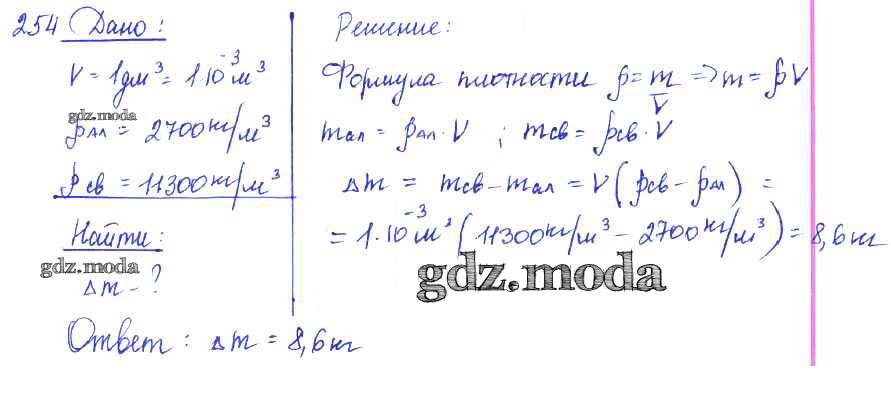 254 Дано:
V = 1дм³ = 1·10⁻³ м³
gdz.moda
ρал = 2700кг/м³
ρсв = 11300кг/м³
Найти:
gdz.moda
Δm - ?
Решение:
Формула плотности ρ = m/V => m = ρV
mал = ρал·V ; mсв = ρсв·V
Δm = mсв - mал = V(ρсв - ρал) =
= 1·10⁻³ м³ (11300кг/м³ - 2700кг/м³) = 8,6кг
gdz.moda
Ответ: Δm = 8,6кг